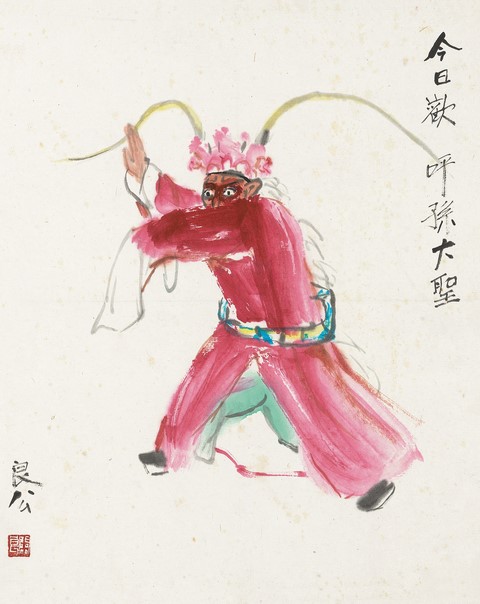 今日歡呼孫大聖
良公